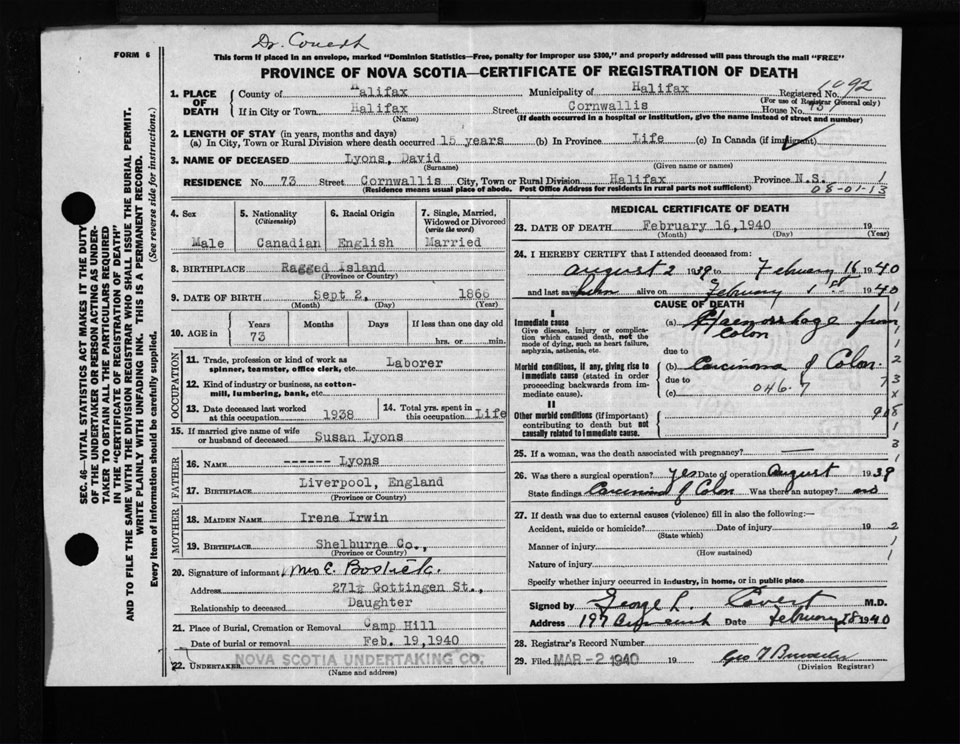 FORM 6
Dr.
This form if placed in an envelope, marked "Dominion Statistics—Free, penalty for improper use $300," and properly addressed will pass through the mail "FREE"
PROVINCE OF NOVA SCOTIA—CERTIFICATE OF REGISTRATION OF DEATH
SEC. 46—VITAL STATISTICS ACT MAKES IT THE DUTY OF THE UNDERTAKER OR PERSON ACTING AS UNDERTAKER TO OBTAIN ALL THE PARTICULARS REQUIRED IN THE "CERTIFICATE OF REGISTRATION OF DEATH" AND TO FILE THE SAME WITH THE DIVISION REGISTRAR WHO SHALL ISSUE THE BURIAL PERMIT.
WRITE PLAINLY WITH UNFADING INK. THIS IS A PERMANENT RECORD.
Every item of information should be carefully supplied. (See reverse side for instructions.)
1. PLACE OF DEATH County of Halifax Municipality of Halifax Registered No. 1092
(For use of Registrar General only)
If in City or Town Halifax Street Cornwallis House No. 73
(Name) (If death occurred in a hospital or institution, give the name instead of street and number)
2. LENGTH OF STAY (in years, months and days)
(a) In City, Town or Rural Division where death occurred 15 years (b) In Province Life (c) In Canada (if immigrant)
3. NAME OF DECEASED Lyons, David
(Surname) (Given name or names)
RESIDENCE No. 73 Street Cornwallis City, Town or Rural Division Halifax Province N.S. 1
(Residence means usual place of abode. Post Office Address for residents in rural parts not sufficient) 08-01-13
4. Sex 5. Nationality (Citizenship) 6. Racial Origin 7. Single, Married, Widowed or Divorced (write the word)
Male Canadian English Married
8. BIRTHPLACE Ragged Island
(Province or Country)
9. DATE OF BIRTH Sept 2, 1866
(Month) (Day) (Year)
10. AGE in Years Months Days If less than one day old
73 hrs. or min.
OCCUPATION
11. Trade, profession or kind of work as spinner, teamster, office clerk, etc. Laborer
12. Kind of industry or business, as cotton-mill, lumbering, bank, etc.
13. Date deceased last worked at this occupation 1938 14. Total yrs. spent in this occupation Life
15. If married give name of wife or husband of deceased Susan Lyons
FATHER
16. NAME ------ Lyons
17. BIRTHPLACE Liverpool, England
(Province or Country)
MOTHER
18. MAIDEN NAME Irene Irwin
19. BIRTHPLACE Shelburne Co.,
(Province or Country)
20. Signature of informant Mrs E.
Address 271½ Gottingen St.,
Relationship to deceased Daughter
21. Place of Burial, Cremation or Removal Camp Hill
Date of burial or removal Feb. 19, 1940
22. UNDERTAKER NOVA SCOTIA UNDERTAKING CO.
(Name and address)
MEDICAL CERTIFICATE OF DEATH
23. DATE OF DEATH February 16, 1940 19
(Month) (Day) (Year)
24. I HEREBY CERTIFY that I attended deceased from:
August 2 1939 to February 16 1940
and last saw him alive on February 1940
CAUSE OF DEATH
I
Immediate cause (a) Haemorrhage from colon
Give disease, injury or complication which caused death, not the mode of dying, such as heart failure, asphyxia, asthenia, etc.
due to
Morbid conditions, if any, giving rise to immediate cause (stated in order proceeding backwards from immediate cause). (b) Carcinoma of Colon
due to 046.7
(c)
II
Other morbid conditions (if important) contributing to death but not causally related to immediate cause.
25. If a woman, was the death associated with pregnancy?
26. Was there a surgical operation? Yes Date of operation August 1939
State findings Carcinoma of Colon Was there an autopsy? no
27. If death was due to external causes (violence) fill in also the following:—
Accident, suicide or homicide? Date of injury 19
(State which)
Manner of injury
(How sustained)
Nature of injury
Specify whether injury occurred in industry, in home, or in public place
Signed by George L. Covert M.D.
Address 197 Date February 1940
28. Registrar's Record Number
29. Filed MAR -2 1940 19 Geo T
(Division Registrar)